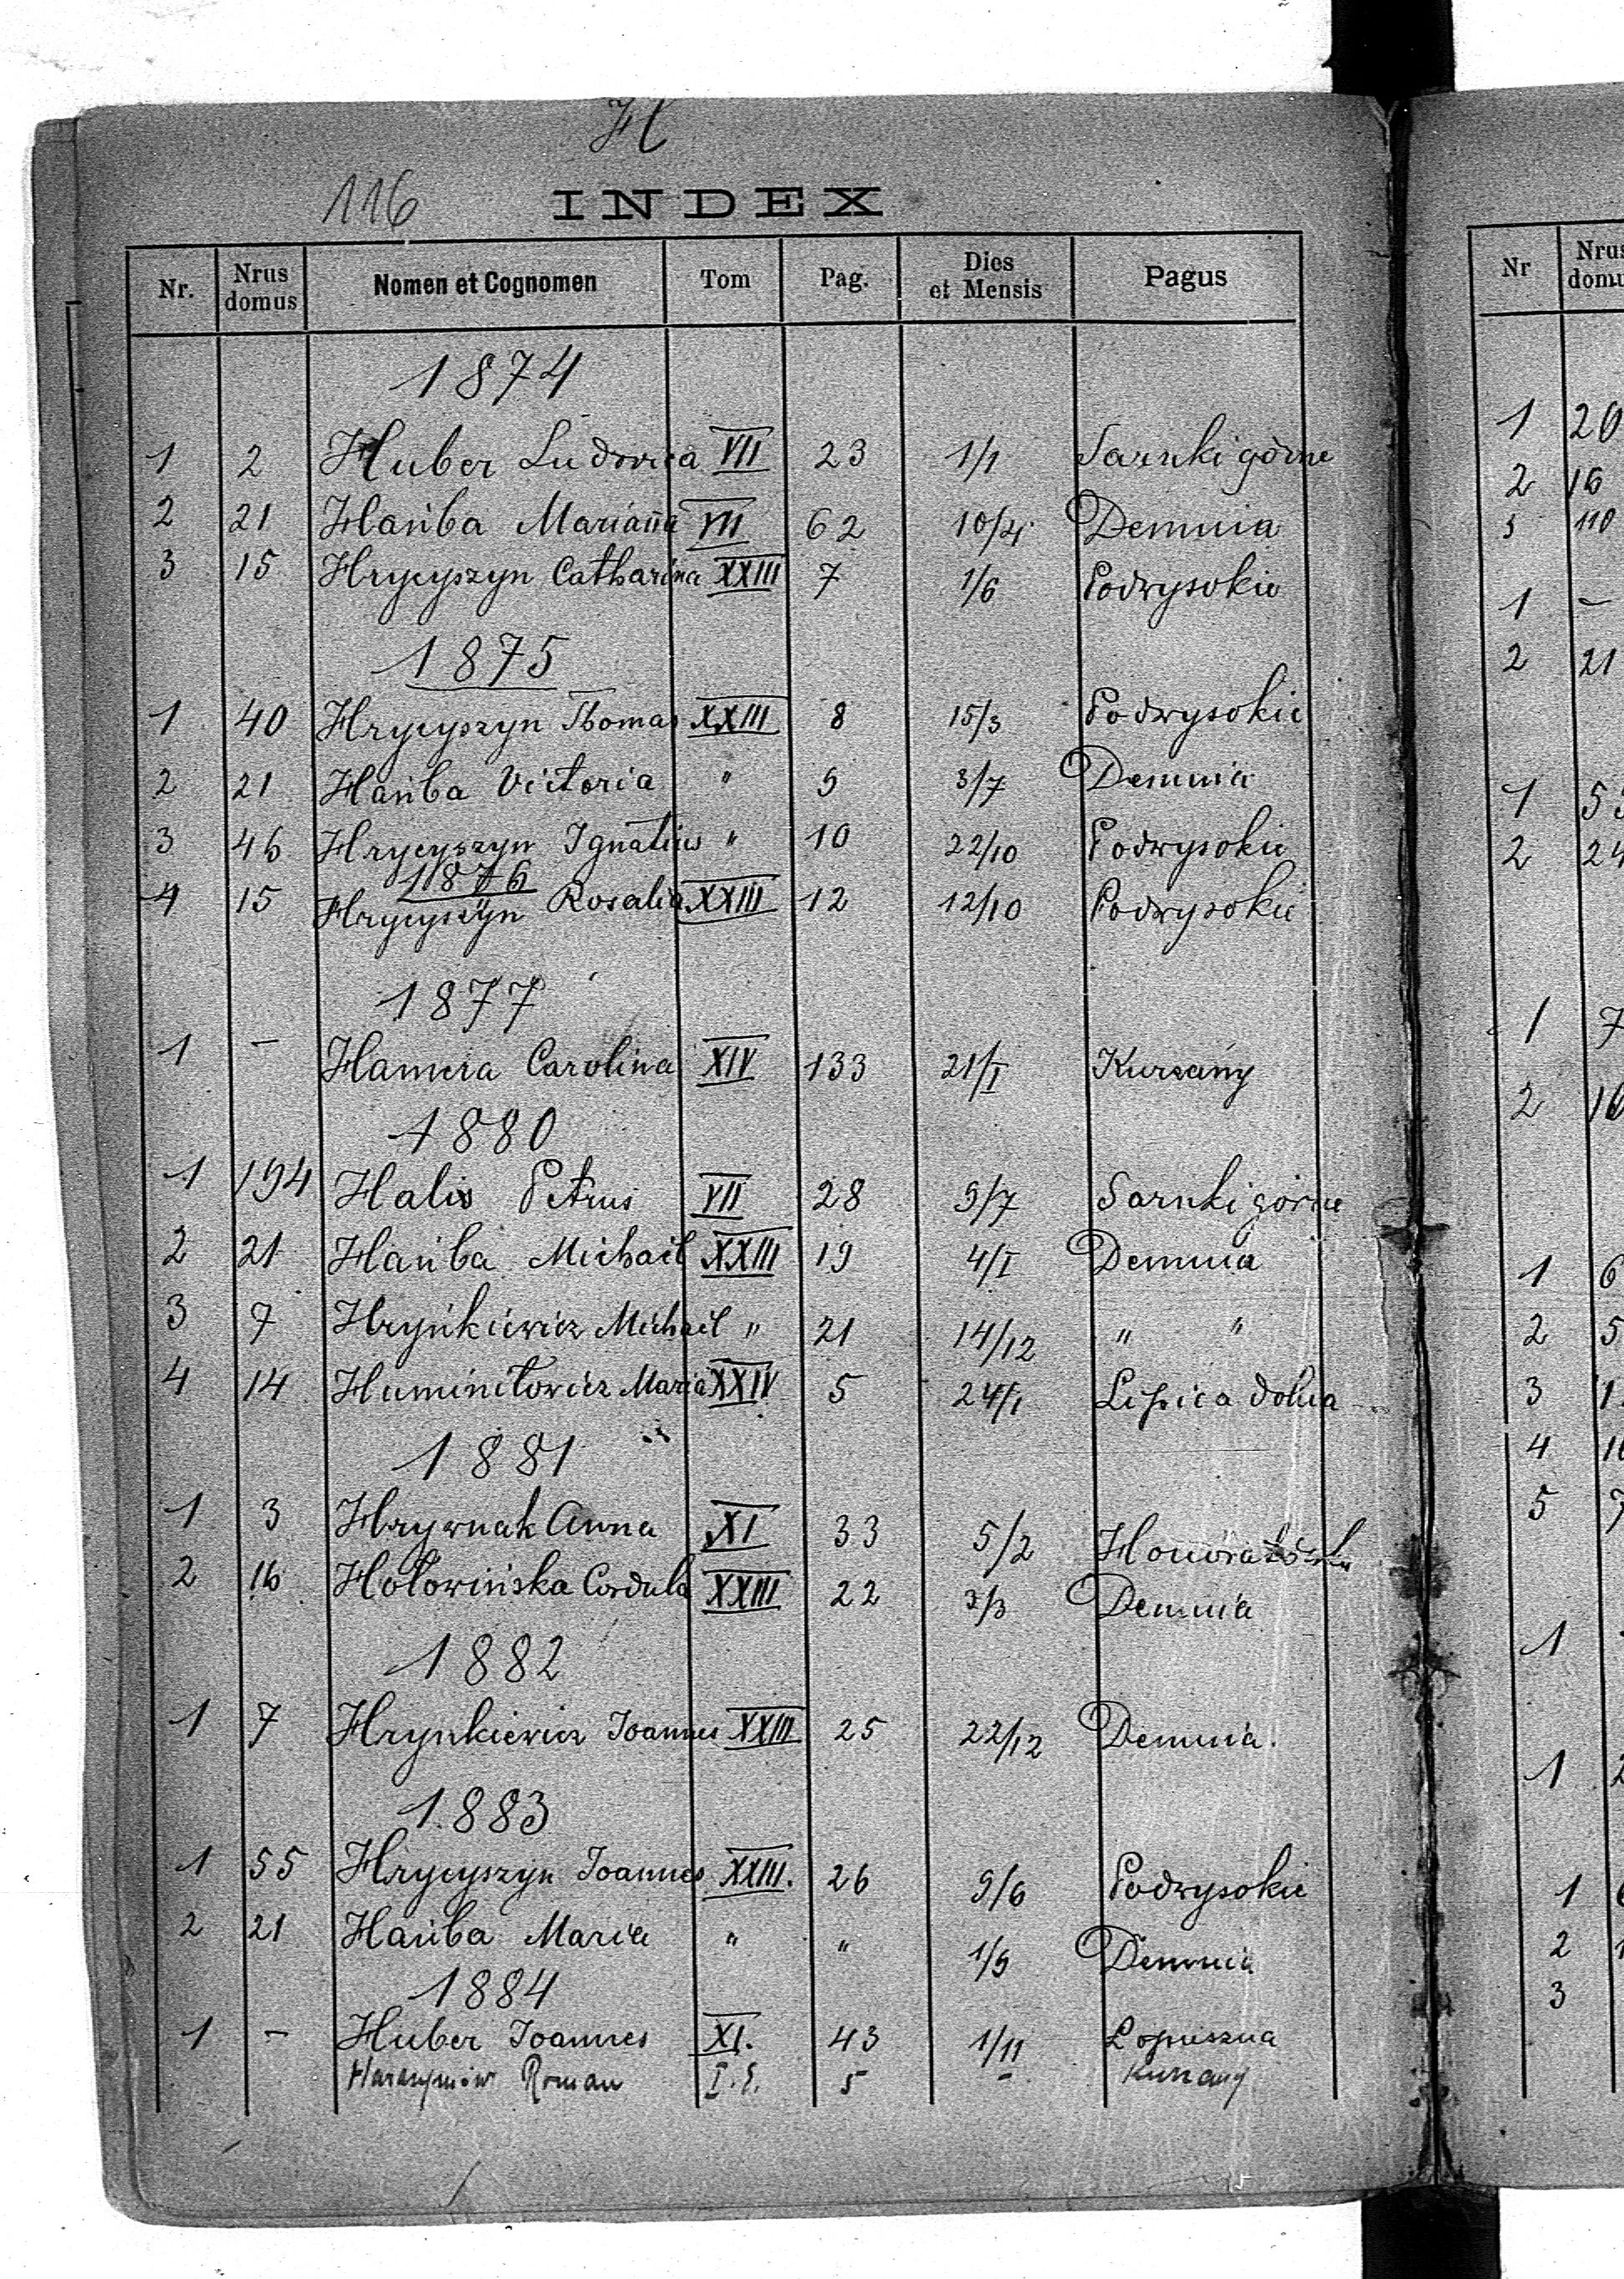 H
116 INDEX
Nr. Nrus domus Nomen et Cognomen Tom Pag. Dies et Mensis Pagus
1874
1 2 Huber Ludovica VII 23 1/1 Sarnki górne
2 21 Hańba Marianna VII 62 10/4 Demnia
3 15 Hrycyszyn Catharina XXIII 7 1/6 Podwysokie
1875
1 40 Hrycyszyn Thomas XXIII 8 15/3 Podwysokie
2 21 Hańba Victoria " 9 3/7 Demnia
3 46 Hrycyszyn Ignatius " 10 22/10 Podwysokie
1876
4 15 Hrycyszyn Rosalia XXIII 12 12/10 Podwysokie
1877
1 – Hamera Carolina XIV 133 21/I Kurzany
1880
1 194 Halis Petrus VII 28 9/7 Sarnki górne
2 21 Hańba Michael XXIII 19 4/I Demnia
3 7 Hryńkiewicz Michael " 21 14/12 " "
4 14 Huminiłowicz Maria XXIV 5 24/I Lipica dolna
1881
1 3 Hrywnak Anna XI 33 5/2
2 16 Hołowińska Cordula XXIII 22 3/3 Demnia
1882
1 7 Hrynkiewicz Joannes XXIII 25 22/12 Demnia.
1883
1 55 Hrycyszyn Joannes XXIII. 26 9/6 Podwysokie
2 21 Hańba Maria " " 1/9 Demnia
1884
1 – Huber Joannes XI. 43 1/11 Łopuszna
Roman 5 – Kurzany
Nr Nrus domu
1 20
2 16
3 110
1 –
2 21
1 5
2 24
1 7
2 10
1 6
2 5
3 1
4 1
5 7
1
1 2
1
2 1
3